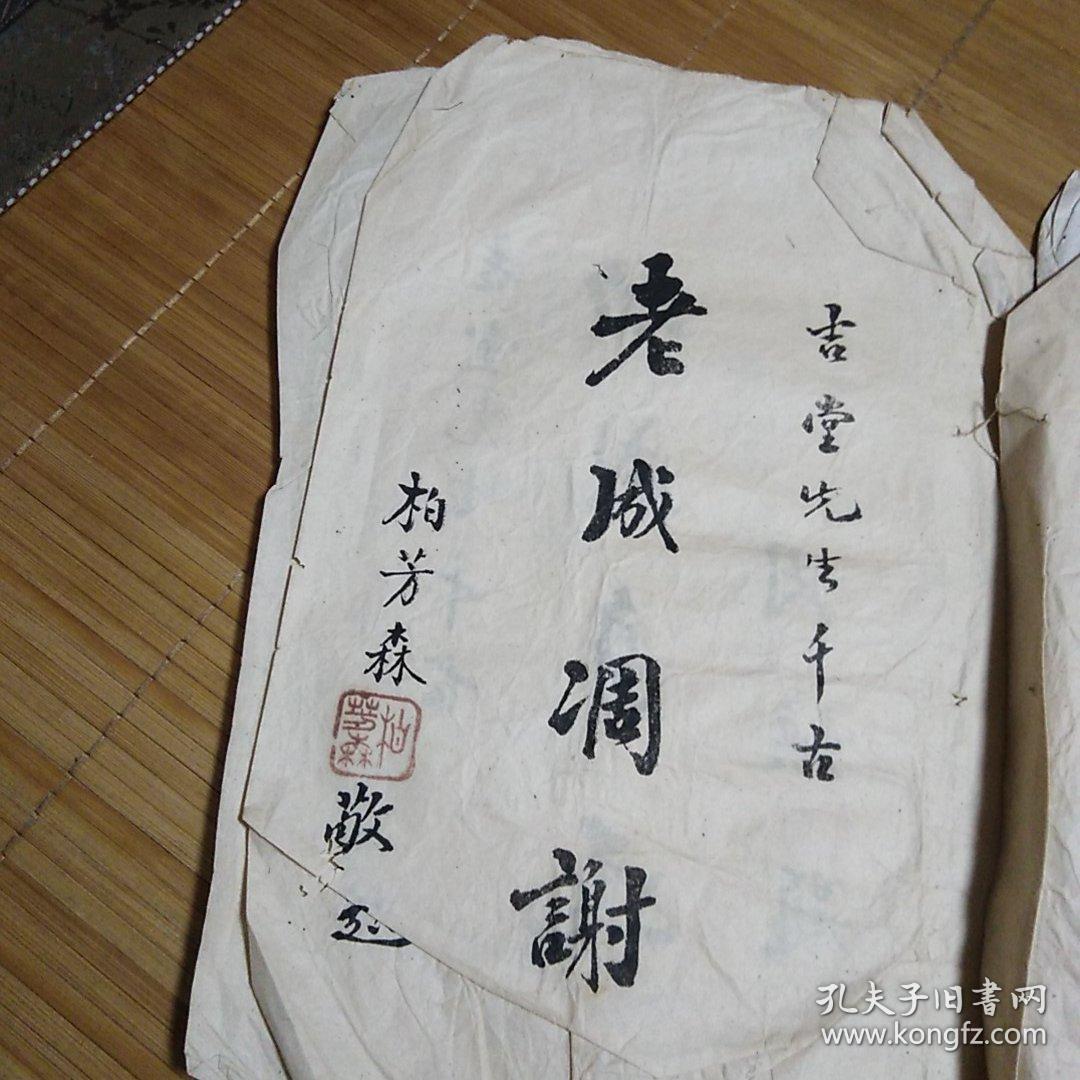 吉堂先生千古
老成凋謝
柏芳森
柏芳森
敬
孔夫子旧書网
www.kongfz.com